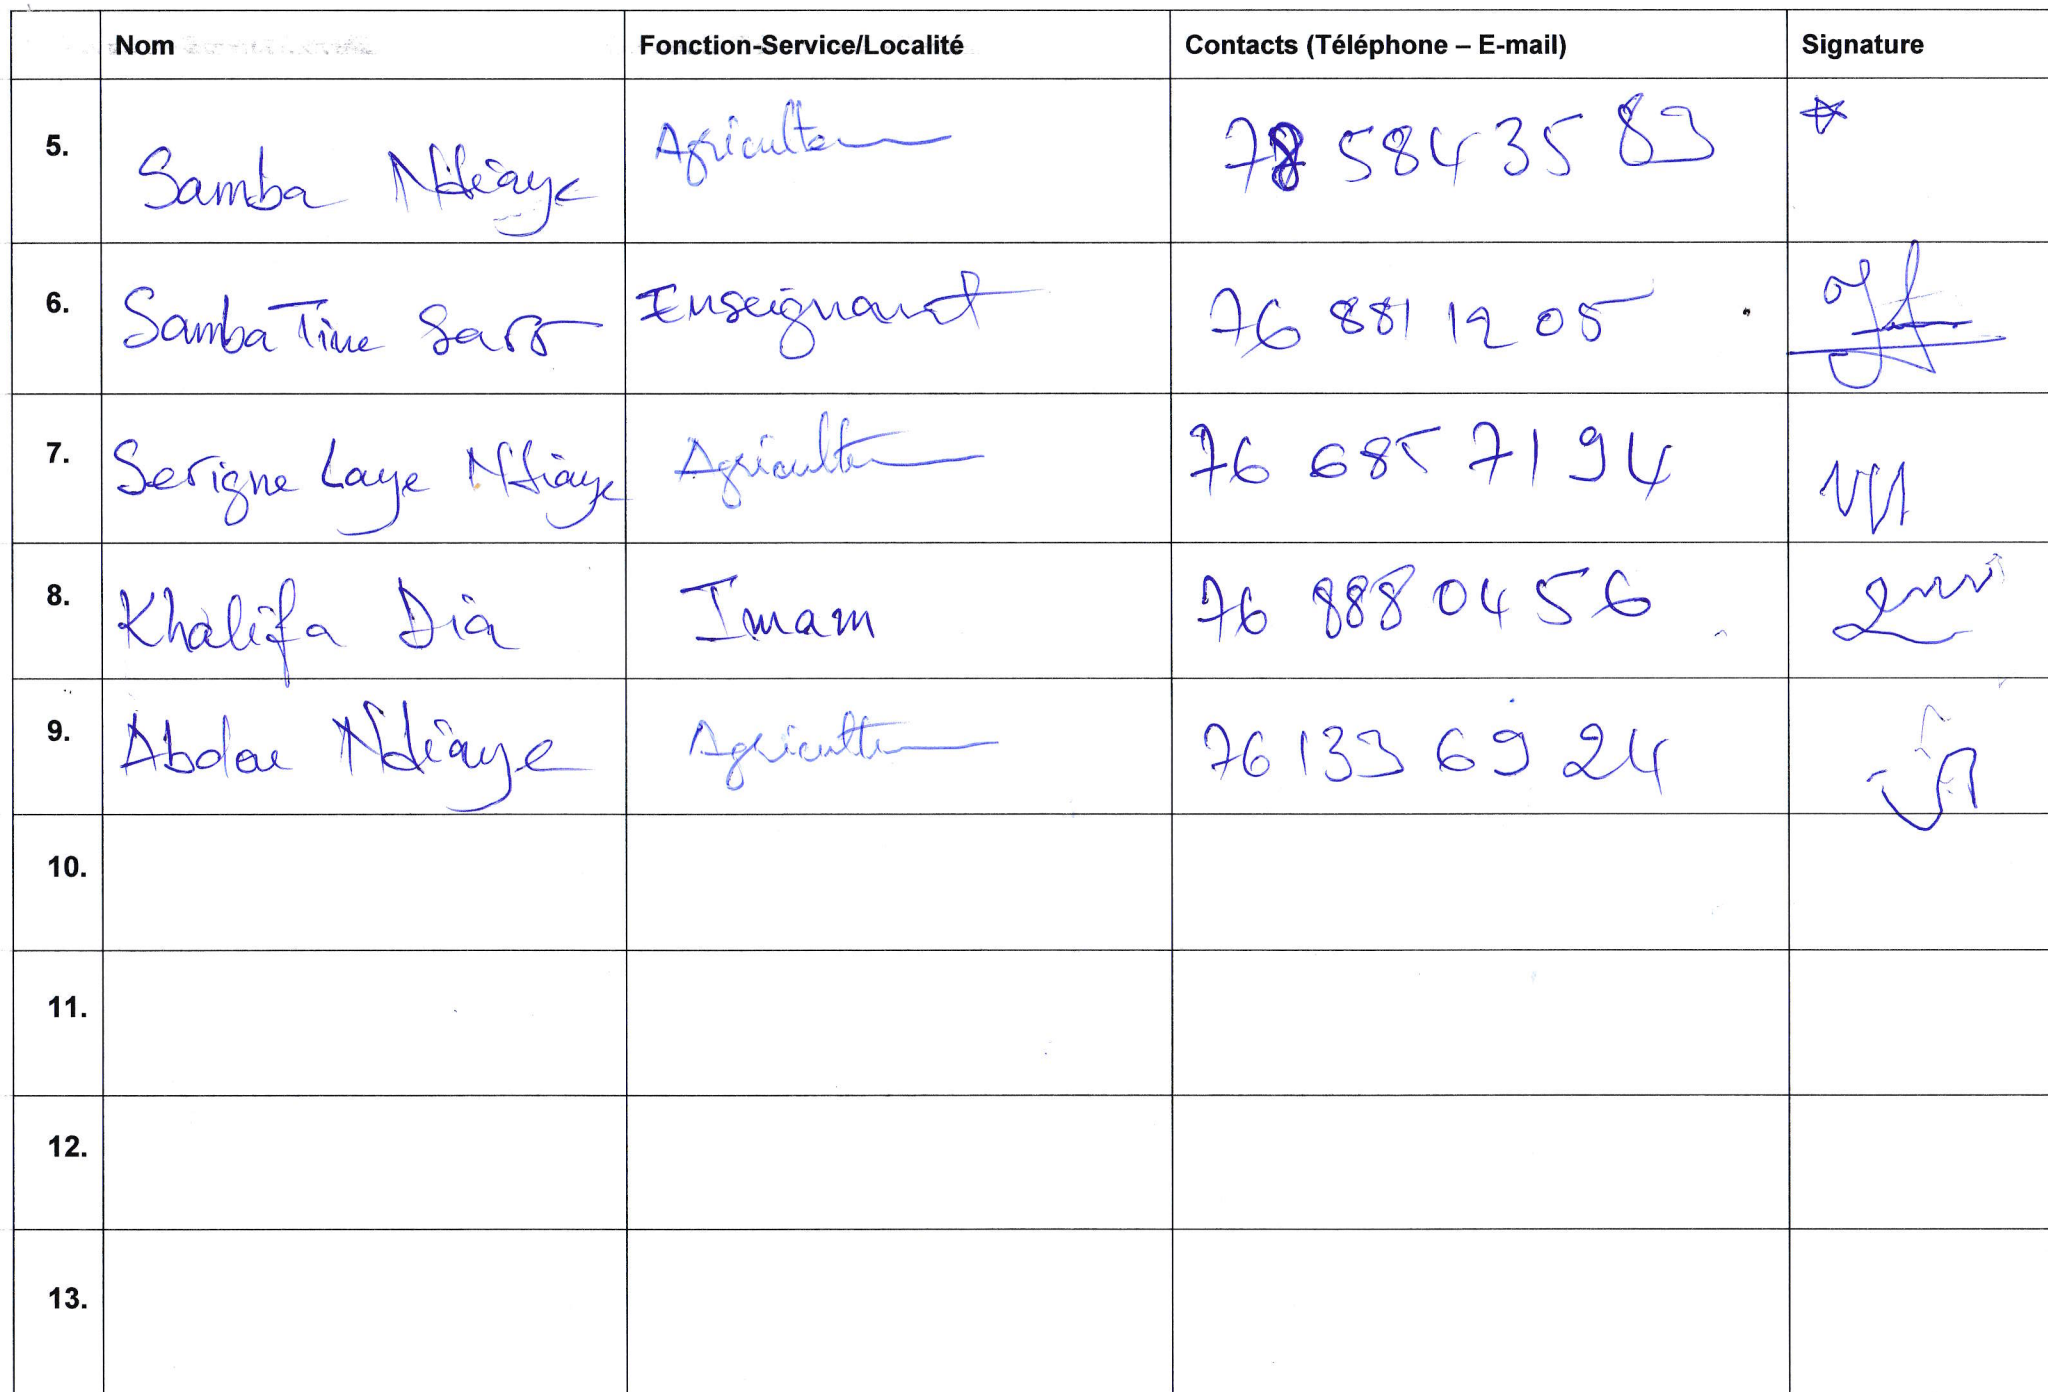 Nom Fonction-Service/Localité Contacts (Téléphone – E-mail) Signature
5. Samba Ndiaye Agriculteur 78 584 35 83
6. Samba Tine Sarr Enseignant 76 881 12 05
7. Serigne Laye Ndiaye Agriculteur 76 685 71 94
8. Khalifa Dia Imam 76 888 04 56
9. Abdou Ndiaye Agriculteur 76 133 69 24
10.
11.
12.
13.